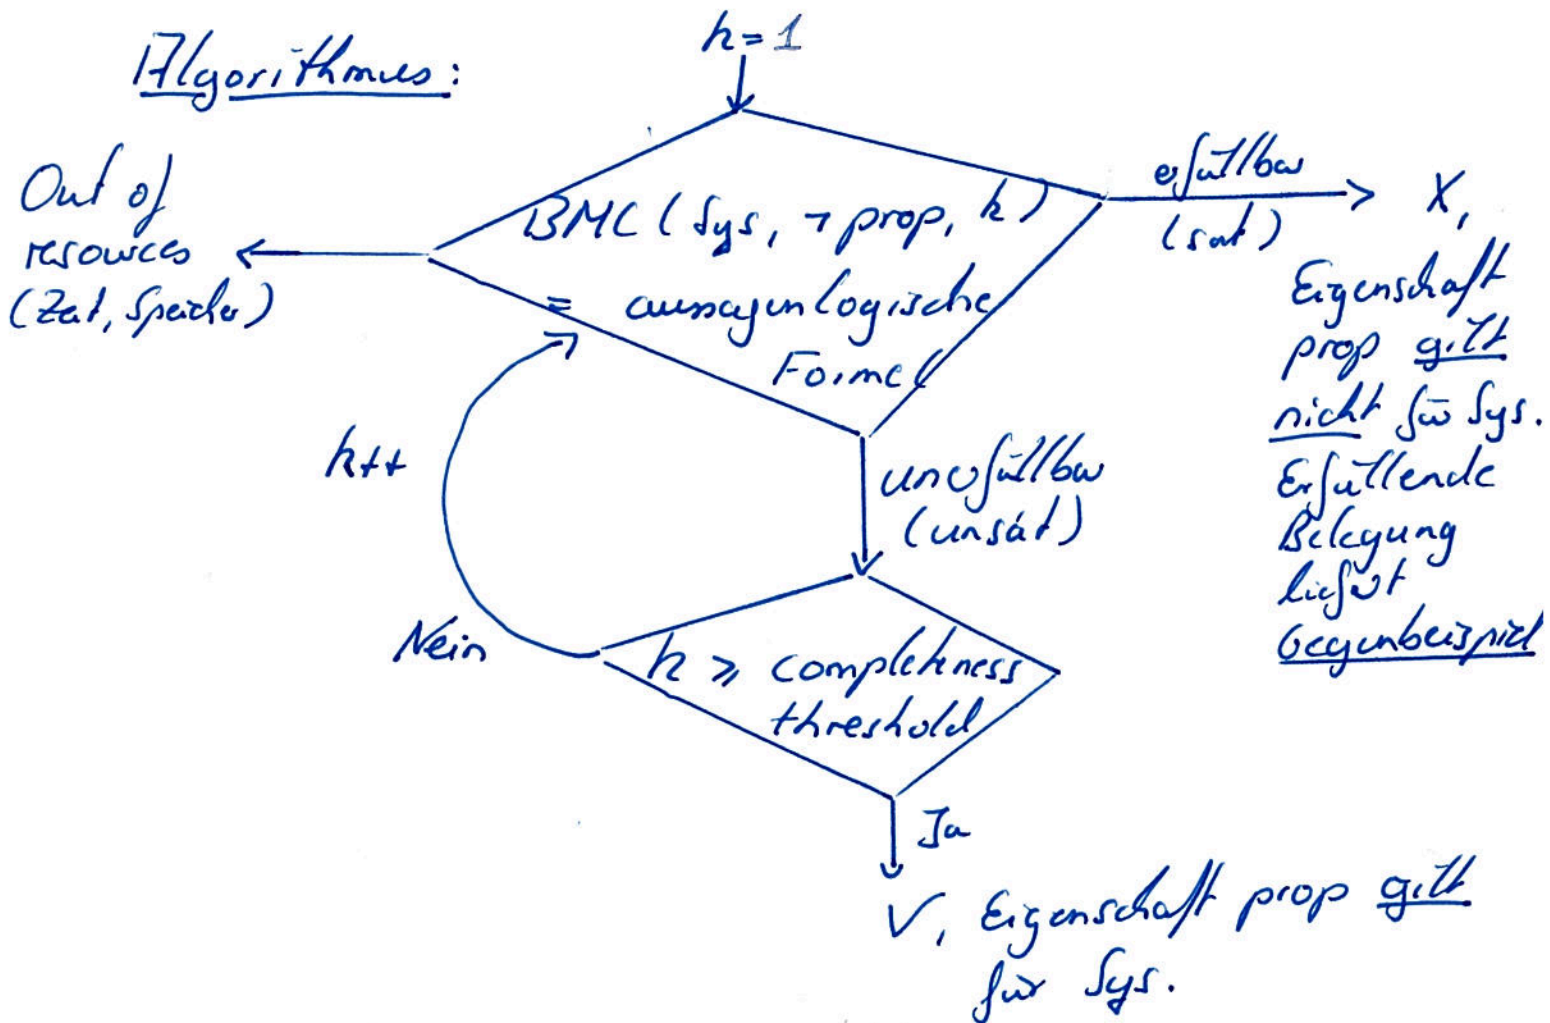 Algorithmus:
k=1
Out of
resources
(Zeit, Speicher)
BMC(Sys, ¬prop, k)
= aussagenlogische
Formel
erfüllbar
(sat)
X,
Eigenschaft
prop gilt
nicht für Sys.
Erfüllende
Belegung
liefert
Gegenbeispiel
k++
unerfüllbar
(unsat)
Nein
k ≥ completeness
threshold
Ja
√, Eigenschaft prop gilt
für Sys.